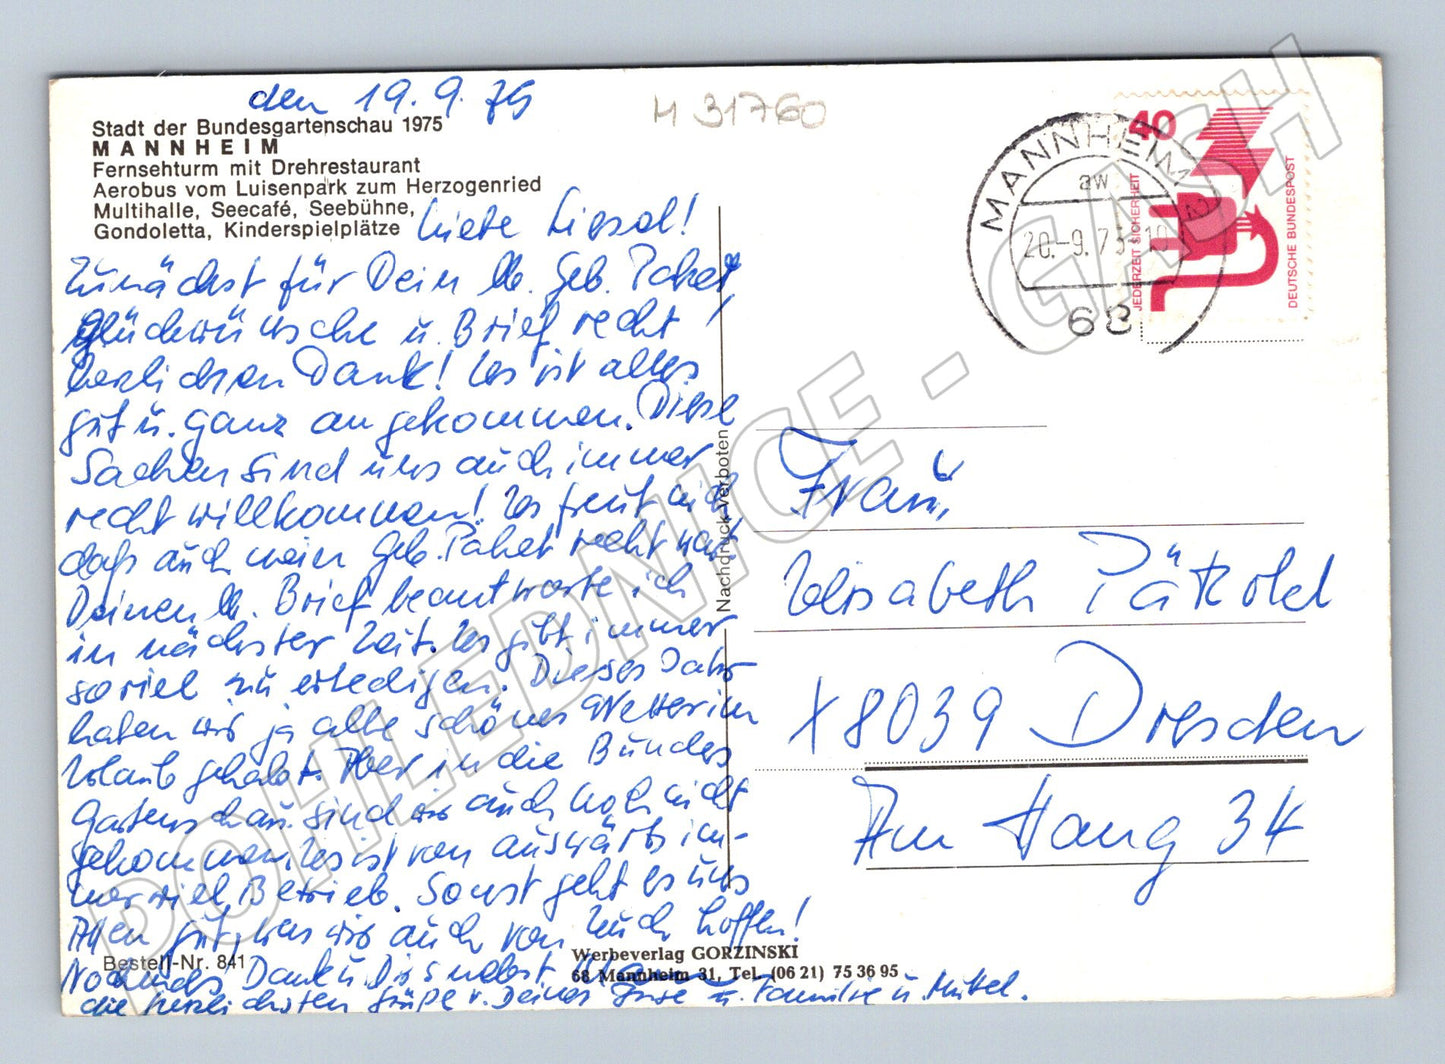 den 19.9.75
H 31760
Stadt der Bundesgartenschau 1975
MANNHEIM
Fernsehturm mit Drehrestaurant
Aerobus vom Luisenpark zum Herzogenried
Multihalle, Seecafé, Seebühne,
Gondoletta, Kinderspielplätze
Liebe Liesel!
Zunächst für Dein lb. Geb. Paket,
Glückwünsche u. Brief recht
herzlichen Dank! Es ist alles
gut u. ganz angekommen. Diese
Sachen sind uns auch immer
recht willkommen! Es freut mich
daß auch mein Geb. Paket recht war.
Deinen lb. Brief beantworte ich
in nächster Zeit. Es gibt immer
soviel zu erledigen. Dieses Jahr
haben wir ja alle schönes Wetter im
Urlaub gehabt. Aber in die Bundes
Gartenschau sind wir auch noch nicht
gekommen. Es ist von auswärts im-
mer viel Betrieb. Sonst geht es uns
Allen gut, was wir auch von Euch hoffen!
Nochmals Dank u. Dir selbst
die herzlichsten Grüße v. Deiner u. Familie u. Mutter.
Bestell-Nr. 841
Werbeverlag GORZINSKI
68 Mannheim 31, Tel. (06 21) 75 36 95
Nachdruck verboten
MANNHEIM 2
aw
20.-9.75-10
68
40
JEDERZEIT SICHERHEIT
DEUTSCHE BUNDESPOST
Frau,
Elisabeth Pätzold
X8039 Dresden
Am Hang 34
POHLEDNICE - GASH